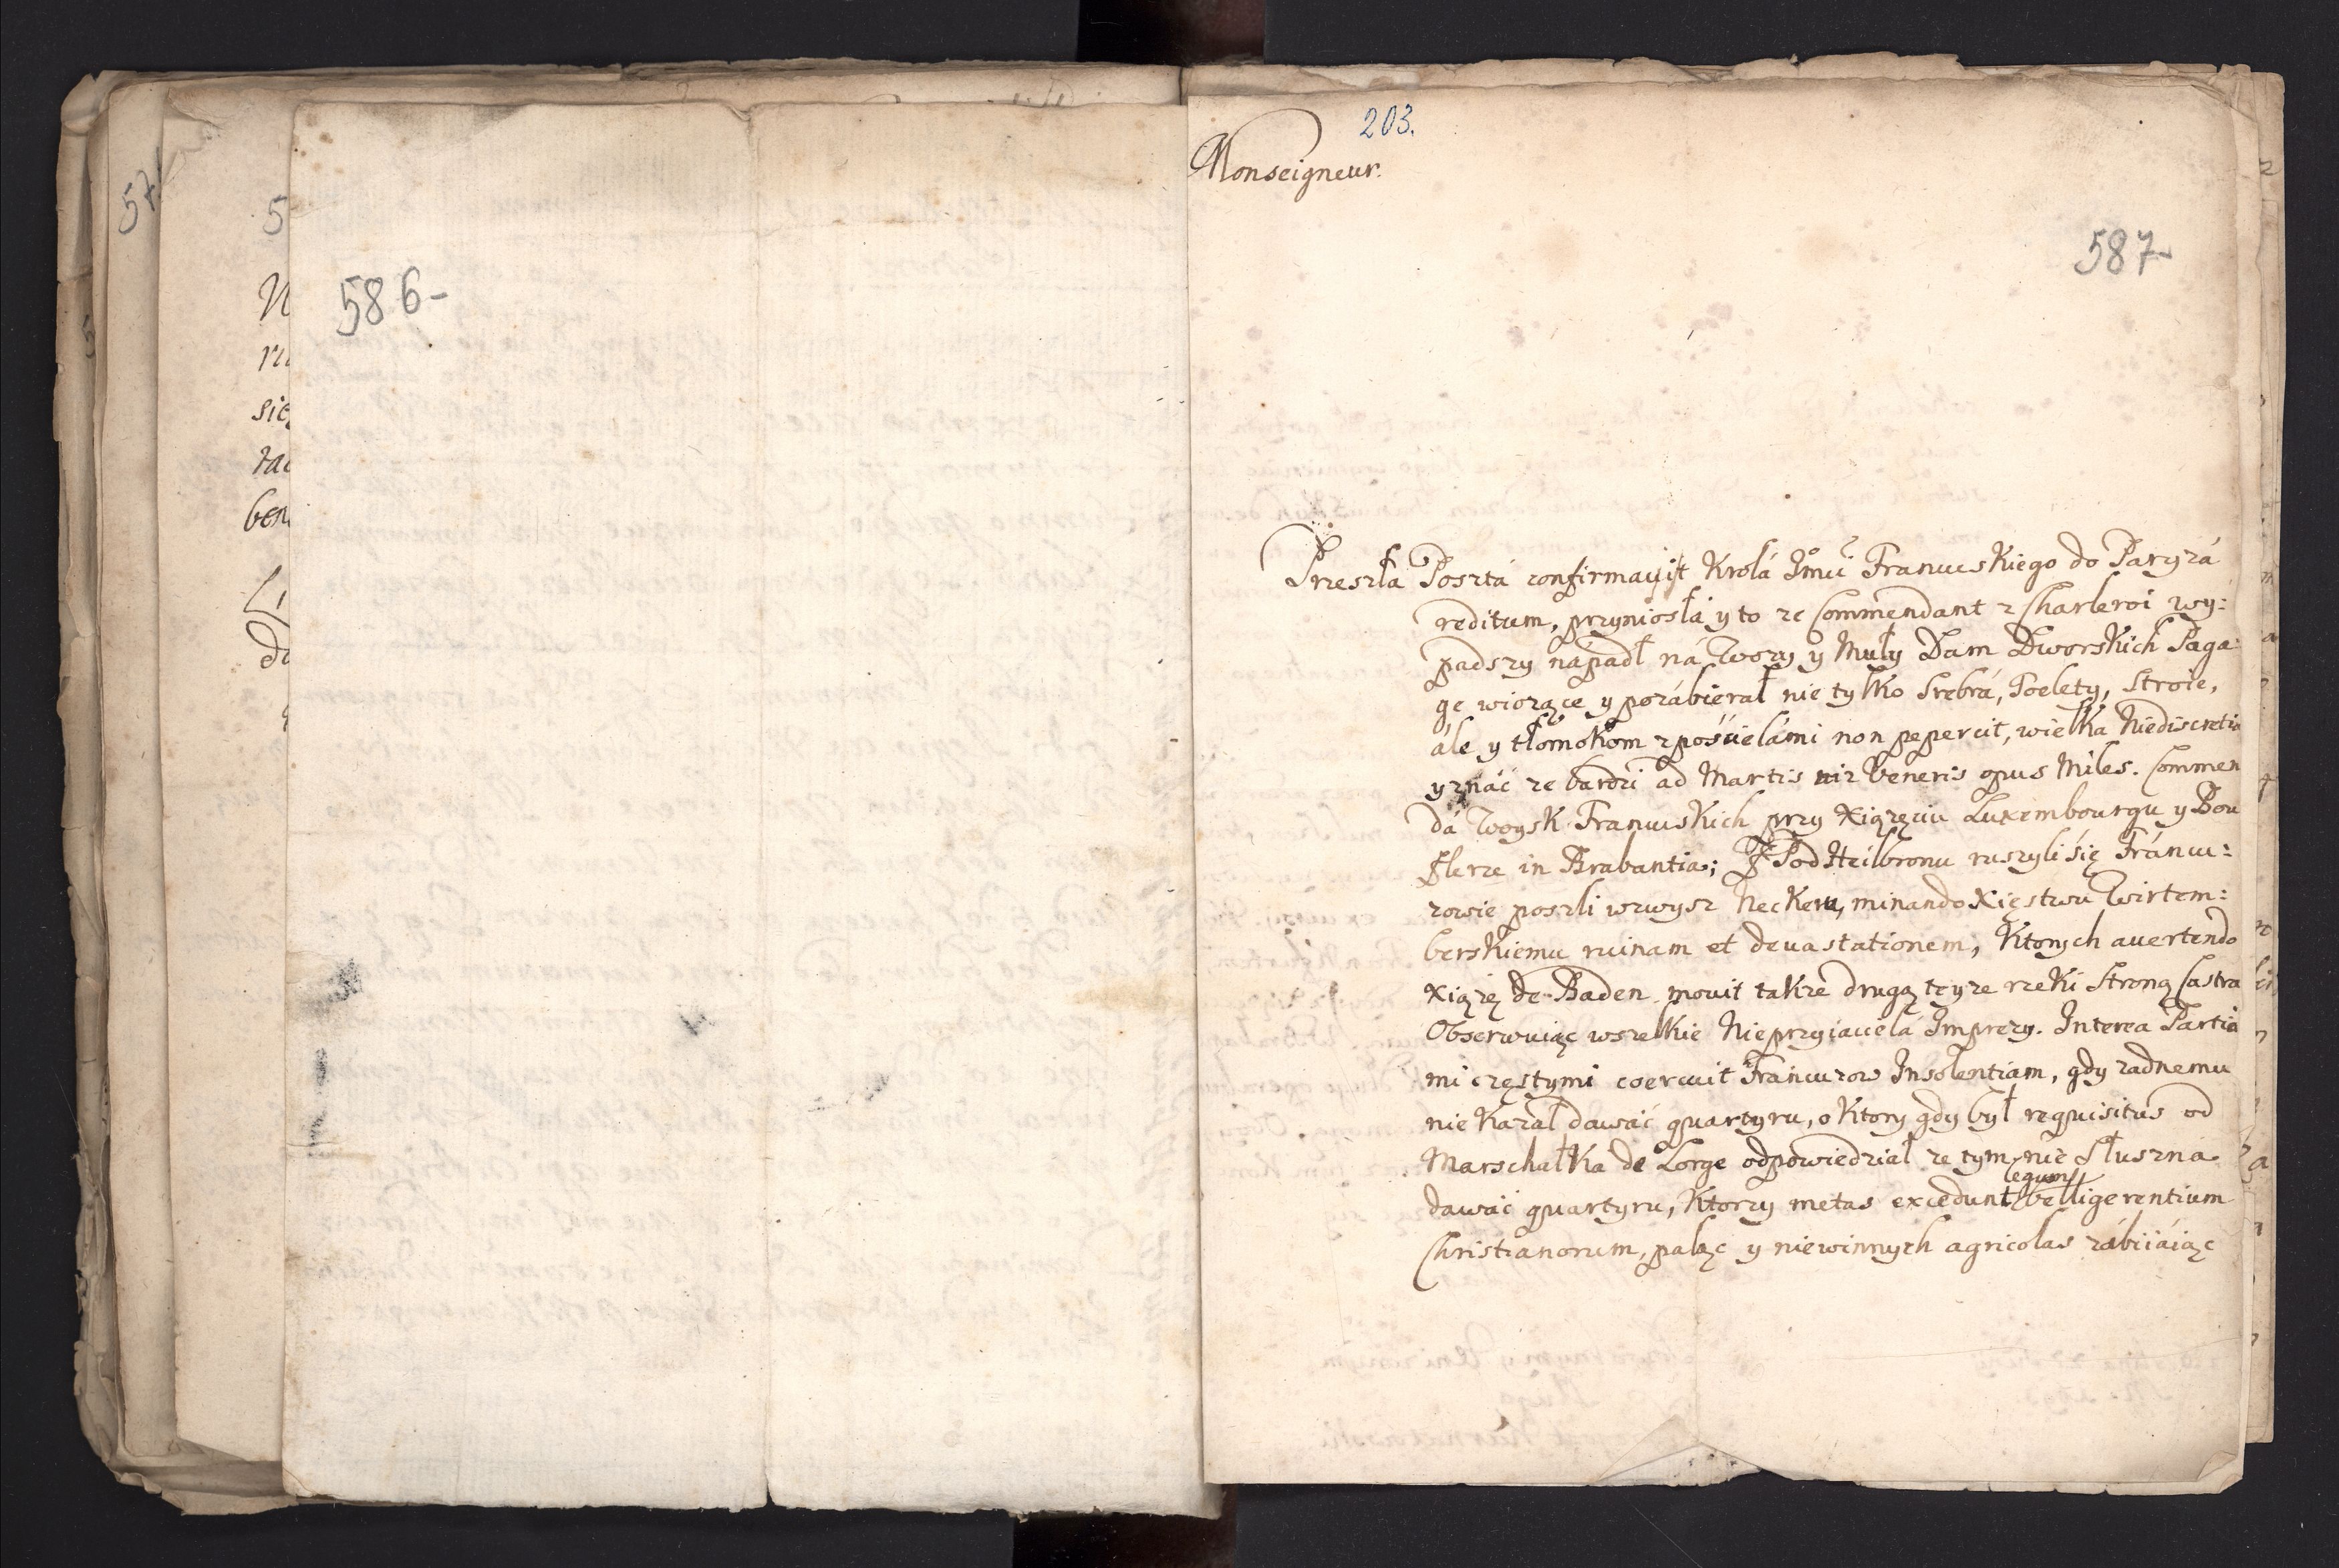 57
5
N
się
586-
203.
Monseigneur.
587-
Przeszła Poszta confirmavit Krolá Jmci Francuskiego do Paryzá
reditum, przyniosłá y to ze Commendant z Charleroi wy:
padszy nápadł ná Wozy y Muły Dam Dworskich Paga:
ge wiozące y pozábierał nie tylko Srebrá, Toelety, Stroie,
ále y tłomokom zpościelámi non pepercit, wielka Niediscretia
yznáć ze bardzi ad Martis niz Veneris opus Miles. Commen
dá Woysk Francuskich przy Xiązęciu Luxembourgu y Bou
flerze in Brabantia; Pod Heilbronu ruszyli się Fráncu:
zowie poszli wzwysz Neckeru, minando Xięstwu Wirtem:
berskiemu ruinam et devastationem, Ktorych avertendo
Xiązę de Baden movit takze drugą teyze rzeki Stroną Castra
Obserwuiąc wszelkie Nieprzyiacielá Imprezy. Interea Partia
mi częstymi coercuit Francuzow Insolentiam, gdy zadnemu
nie Kazał dawáć quartyru, o Ktory gdy był requisitus od
Marschałka de Lorge odpowiedział ze tym nie Słuszna
legum
dawáć quartyru, Ktorzy metas excedunt belligerentium
Christianorum, paląc y niewinnych agricolas zábiiáiąc